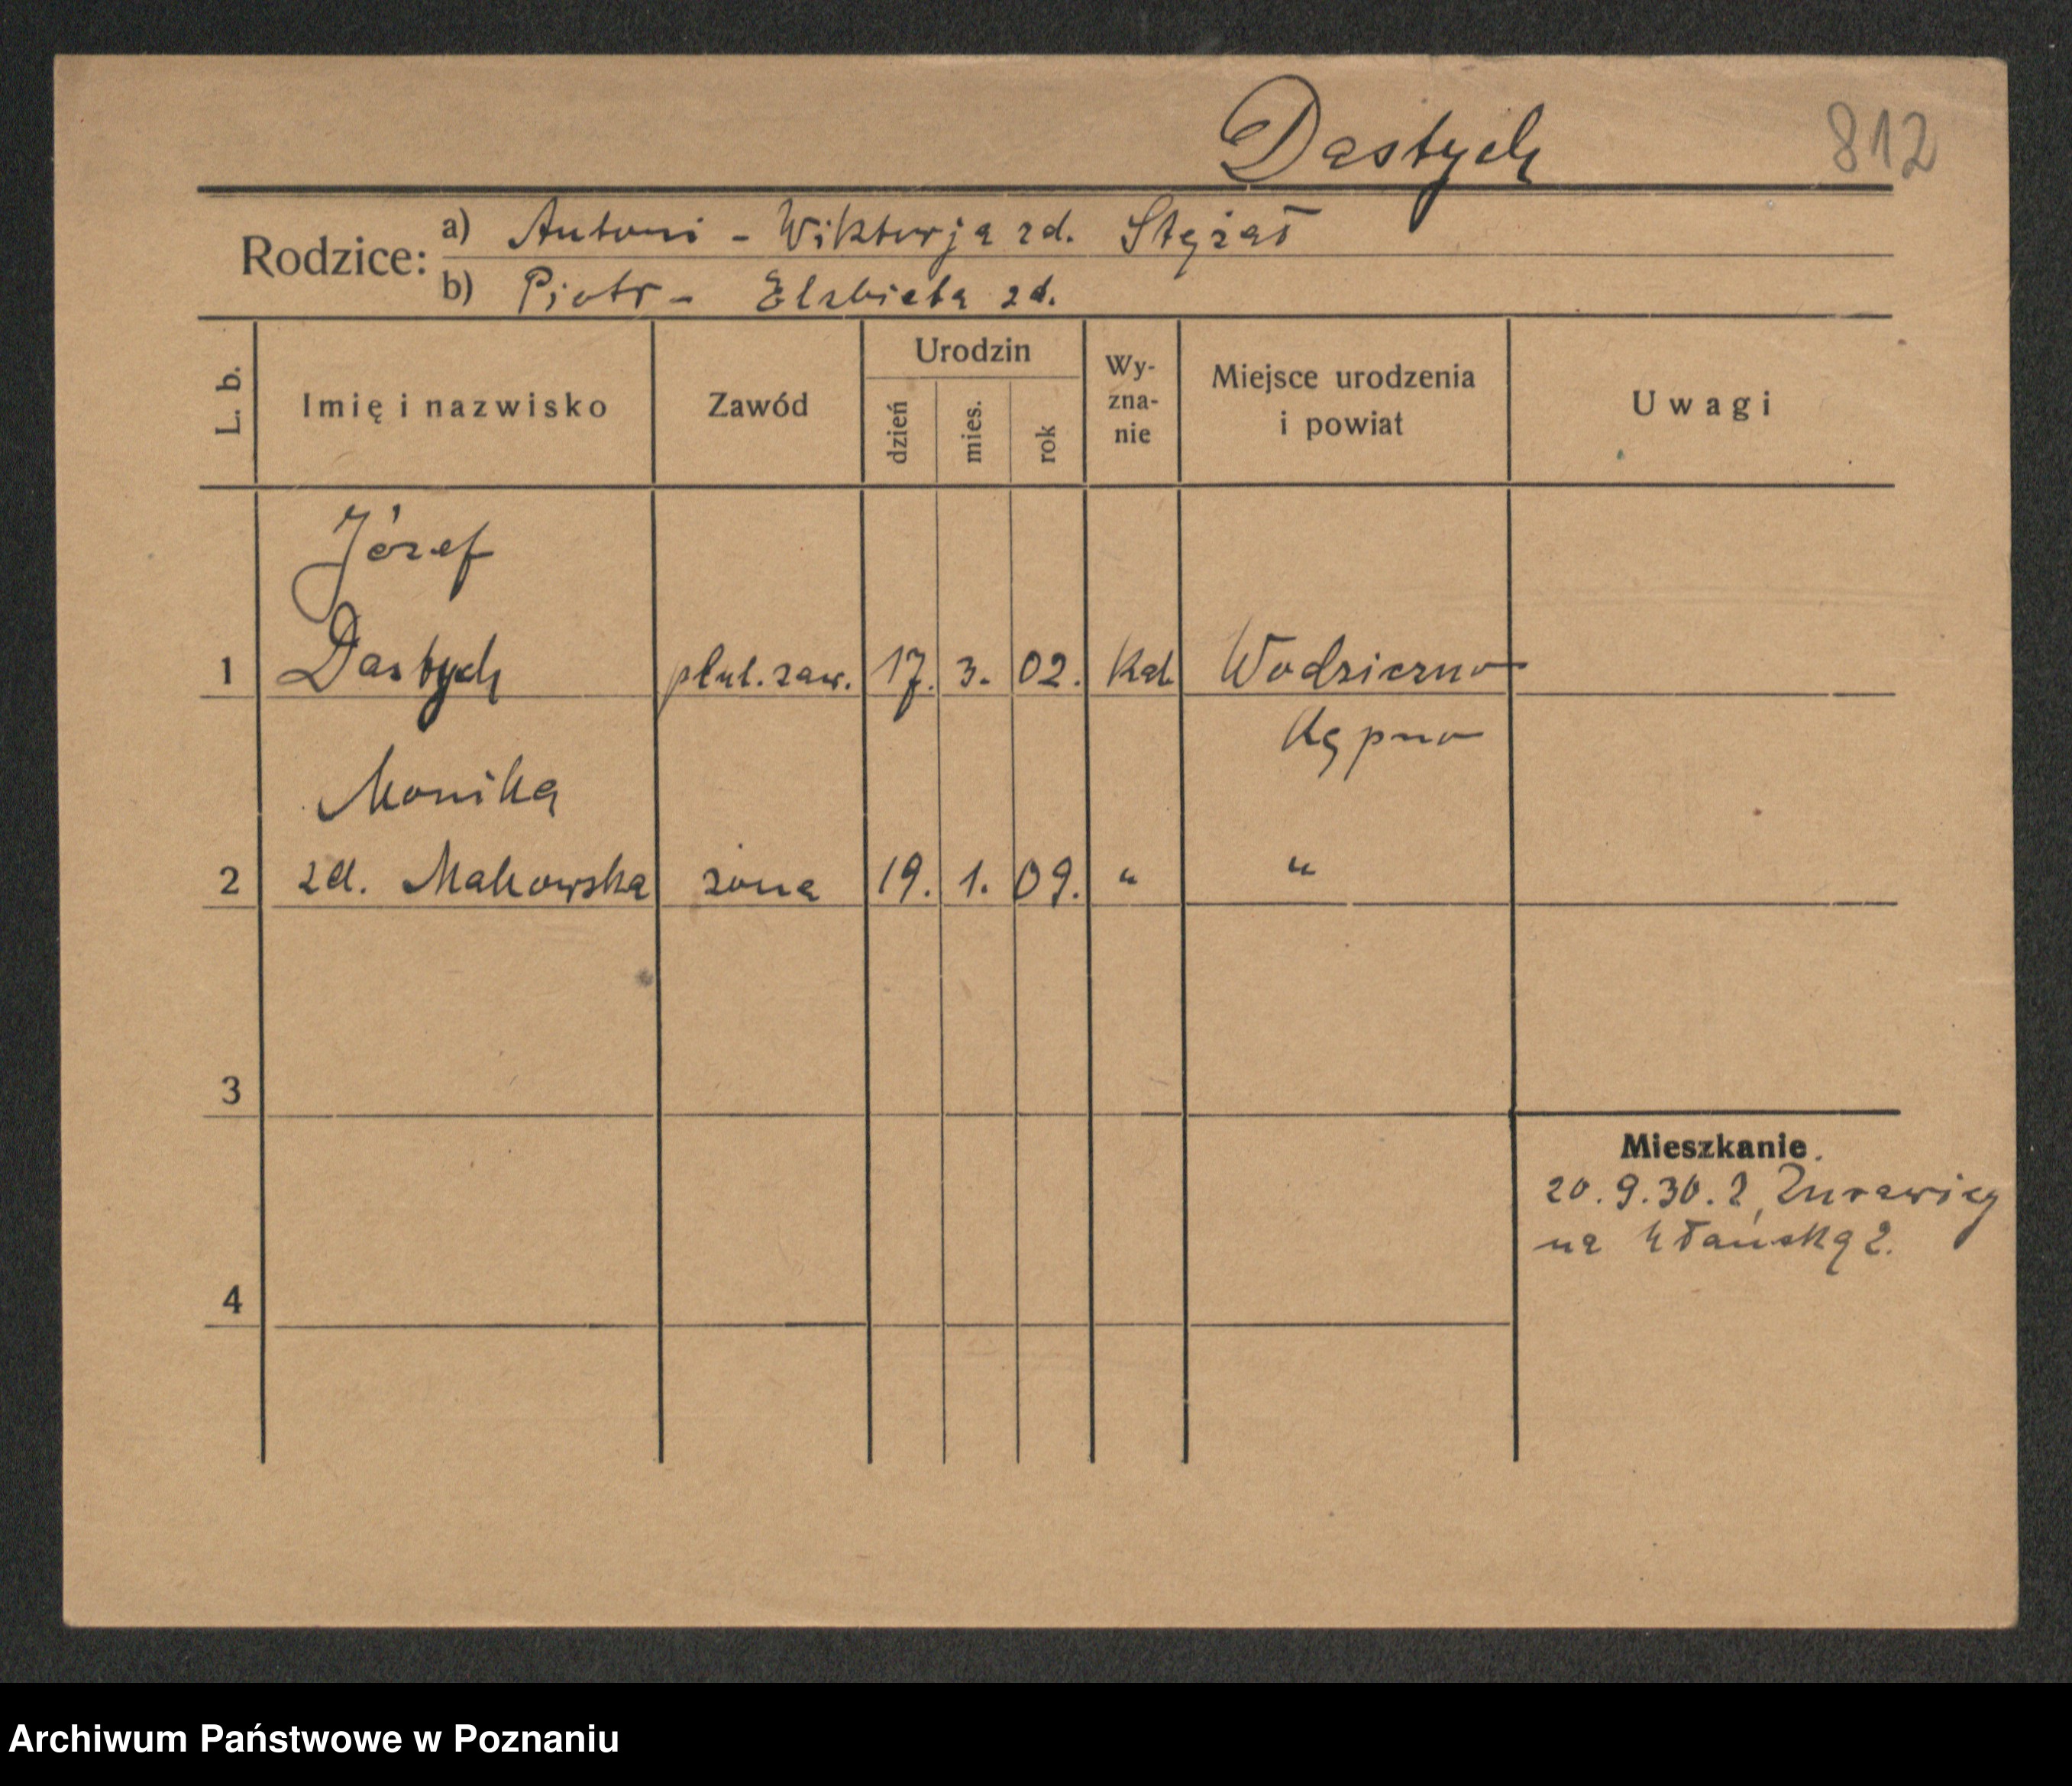 Dastych 812
Rodzice: a) Antoni - Wiktorja zd. Stężał
b) Piotr - Elzbieta zd.
L. b. Imię i nazwisko Zawód Urodzin dzień mies. rok Wy-zna-nie Miejsce urodzenia i powiat Uwagi
Józef
1 Dastych plut. zaw. 17. 3. 02. Kat Wodziczno
Kępno
Monika
2 zd. Makowska żona 19. 1. 09. " "
3
Mieszkanie
20.9.30. z Żurawiej
na Ułańską 2.
4
Archiwum Państwowe w Poznaniu